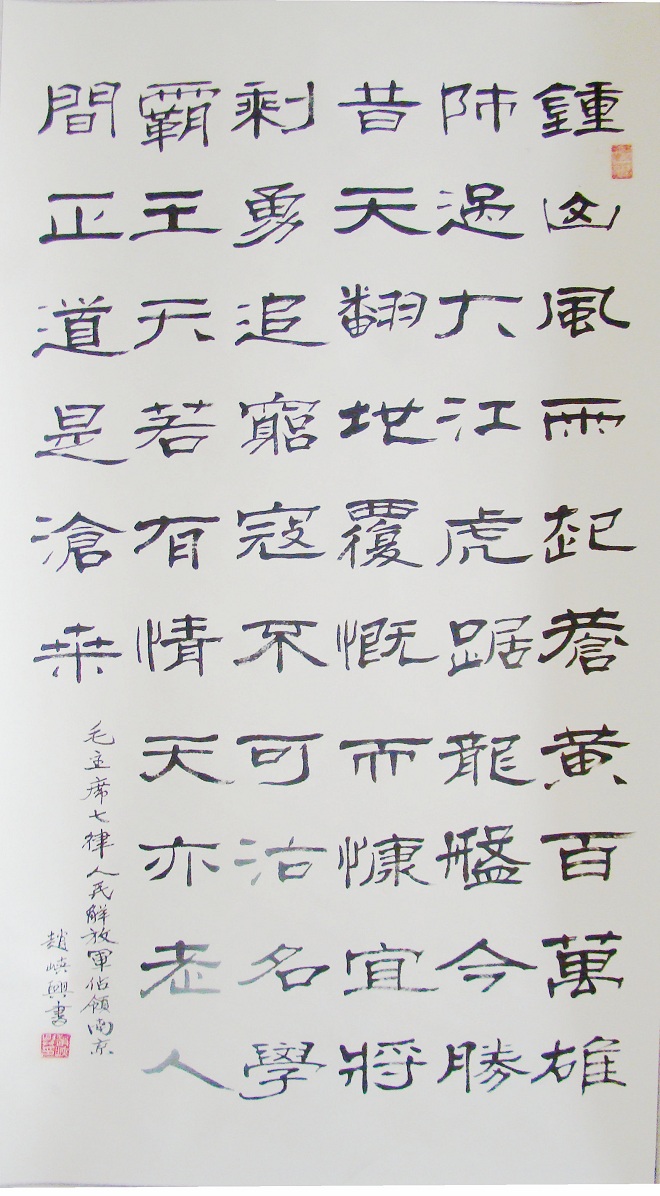 鍾山風雨起蒼黃百萬雄
師過大江虎踞龍盤今勝
昔天翻地覆慨而慷宜將
剩勇追窮寇不可沽名學
霸王天若有情天亦老人
間正道是滄桑
毛主席七律人民解放軍佔領南京
趙興書